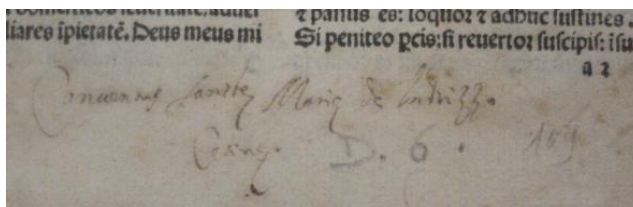 liares īpietatē. Deus meus mi
⁊ passus es: loquor ⁊ adhuc sustines.
Si peniteo pcis: si reuertor suscipis: isu
a 2
Conuentus Sancte Marię de
D. 6.